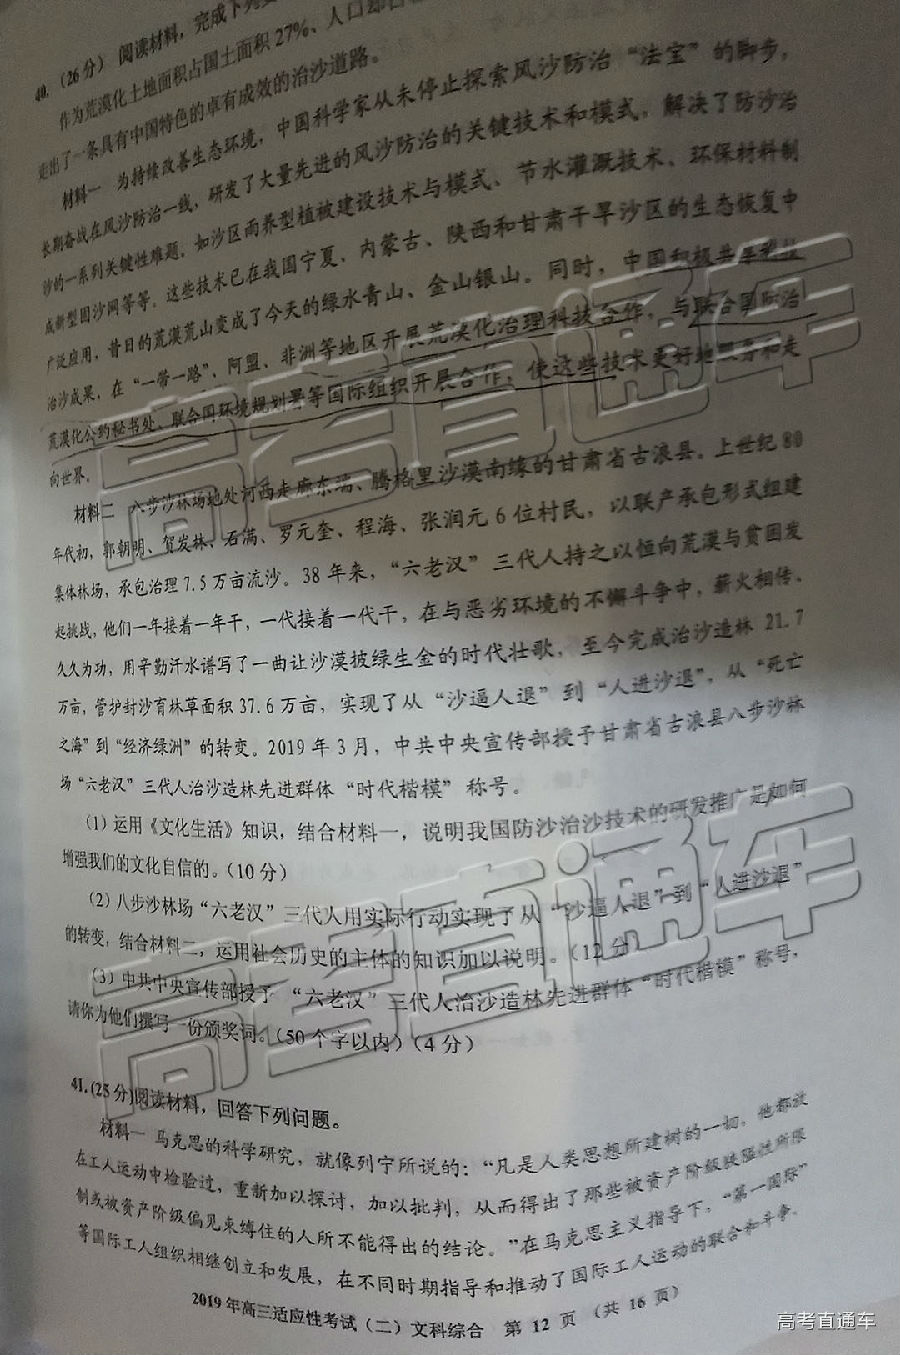 40.(26分) 阅读材料，完成下列
作为荒漠化土地面积占国土面积27%、人口
走出了一条具有中国特色的卓有成效的治沙道路。
材料一 为持续改善生态环境，中国科学家从未停止探索风沙防治“法宝”的脚步，
长期奋战在风沙防治一线，研发了大量先进的风沙防治的关键技术和模式，解决了防沙治
沙的一系列关键性难题，如沙区雨养型植被建设技术与模式、节水灌溉技术、环保材料制
成新型固沙网等等。这些技术已在我国宁夏、内蒙古、陕西和甘肃干旱沙区的生态恢复中
广泛应用，昔日的荒漠荒山变成了今天的绿水青山、金山银山。同时，中国积极共享科技
治沙成果，在“一带一路”、阿盟、非洲等地区开展荒漠化治理科技合作，与联合国防治
荒漠化公约秘书处、联合国环境规划署等国际组织开展合作，使这些技术更好地服务和走
向世界。
材料二 八步沙林场地处河西走廊东端、腾格里沙漠南缘的甘肃省古浪县。上世纪80
年代初，郭朝明、贺发林、石满、罗元奎、程海、张润元6位村民，以联产承包形式组建
集体林场，承包治理7.5万亩流沙。38年来，“六老汉”三代人持之以恒向荒漠与贫困发
起挑战，他们一年接着一年干，一代接着一代干，在与恶劣环境的不懈斗争中，薪火相传、
久久为功，用辛勤汗水谱写了一曲让沙漠披绿生金的时代壮歌，至今完成治沙造林 21.7
万亩，管护封沙育林草面积37.6万亩，实现了从“沙逼人退”到“人进沙退”，从“死亡
之海”到“经济绿洲”的转变。2019年3月，中共中央宣传部授予甘肃省古浪县八步沙林
场“六老汉”三代人治沙造林先进群体“时代楷模”称号。
(1)运用《文化生活》知识，结合材料一，说明我国防沙治沙技术的研发推广是如何
增强我们的文化自信的。(10分)
(2)八步沙林场“六老汉”三代人用实际行动实现了从“沙逼人退”到“人进沙退”
的转变，结合材料二，运用社会历史的主体的知识加以说明。(12分
(3)中共中央宣传部授予 “六老汉”三代人治沙造林先进群体“时代楷模”称号，
请你为他们撰写一份颁奖词。(50个字以内)(4分)
41.(25分)阅读材料，回答下列问题。
材料一 马克思的科学研究，就像列宁所说的：“凡是人类思想所建树的一切，他都放
在工人运动中检验过，重新加以探讨，加以批判，从而得出了那些被资产阶级狭隘性所限
制或被资产阶级偏见束缚住的人所不能得出的结论。”在马克思主义指导下，“第一国际”
等国际工人组织相继创立和发展，在不同时期指导和推动了国际工人运动的联合和斗争。
2019年高三适应性考试（二）文科综合 第12页（共16页）
高考直通车
高考直通车
高考直通车